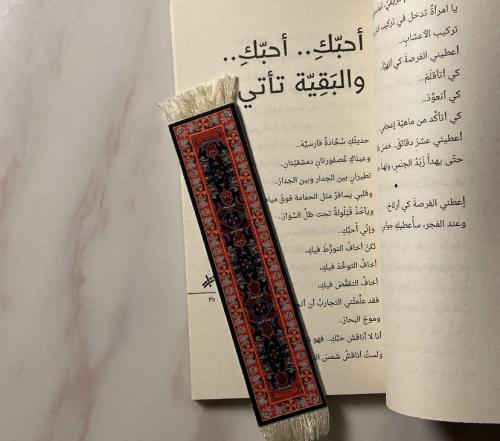 أحبّكِ.. أحبّكِ..
والبَقِيّة تأتي
حديثُكِ سُجّادةٌ فارسيّة..
وعيناكِ عُصفورتانِ دمشقيّتانِ..
تطيرانِ بين الجدار وبين الجدارْ..
وقلبي يسافرُ مثل الحمامة فوقَ مياه
ويأخذُ قَيْلُولةً تحت ظلّ السِّوارْ..
وإنّي أُحبُّكِ..
لكنْ أخافُ التورُّطَ فيكِ،
أخافُ التوحُّدَ فيكِ،
أخافُ التقمُّصَ فيكِ،
فقد علَّمتْني التجاربُ أن
وموجَ البحارْ..
أنا لا أناقشُ حبَّكِ.. فهو
ولستُ أناقشُ شمسَ
٣٥
يا امرأةً تدخل في تركيب
تركيب الأعشاب..
أعطيني الفرصةَ كي
كي أتأقلَمْ..
كي أتعوَّدَ..
كي أتأكّد من ماهيّة
أعطيني عشرَ دقائقَ..
حتّى يهدأ زَبَدُ الجنسِ
إعطني الفرصةَ كي أرتاحَ.
وعند الفجر، سأعطيكِ